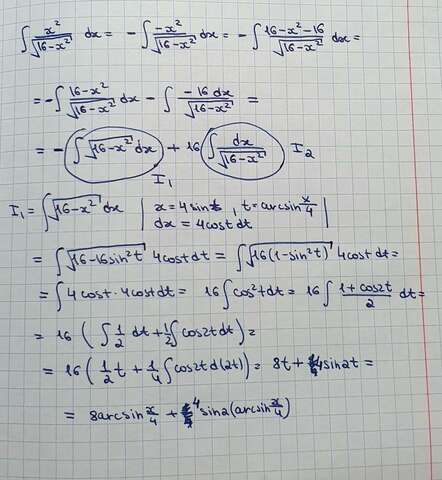 ∫ x²/√(16-x²) dx = - ∫ -x²/√(16-x²) dx = - ∫ (16-x²-16)/√(16-x²) dx =
= - ∫ (16-x²)/√(16-x²) dx - ∫ -16dx/√(16-x²) =
= - ∫ √(16-x²) dx + 16 ∫ dx/√(16-x²) I₂
I₁
I₁ = ∫ √(16-x²) dx | x = 4sint, t = arcsin x/4
dx = 4costdt |
= ∫ √(16-16sin²t) 4costdt = ∫ √(16(1-sin²t)) 4costdt =
= ∫ 4cost·4costdt = 16 ∫ cos²tdt = 16 ∫ (1+cos2t)/2 dt =
= 16 ( ∫ 1/2 dt + 1/2 ∫ cos2tdt ) =
= 16 ( 1/2 t + 1/4 ∫ cos2td(2t) ) = 8t + 4sin2t =
= 8arcsin x/4 + 4 sin2(arcsin x/4)